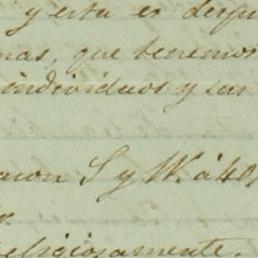 y esta es despu
mas, que tenemos
individuos y sus
S y W. á 40
religiosamente.